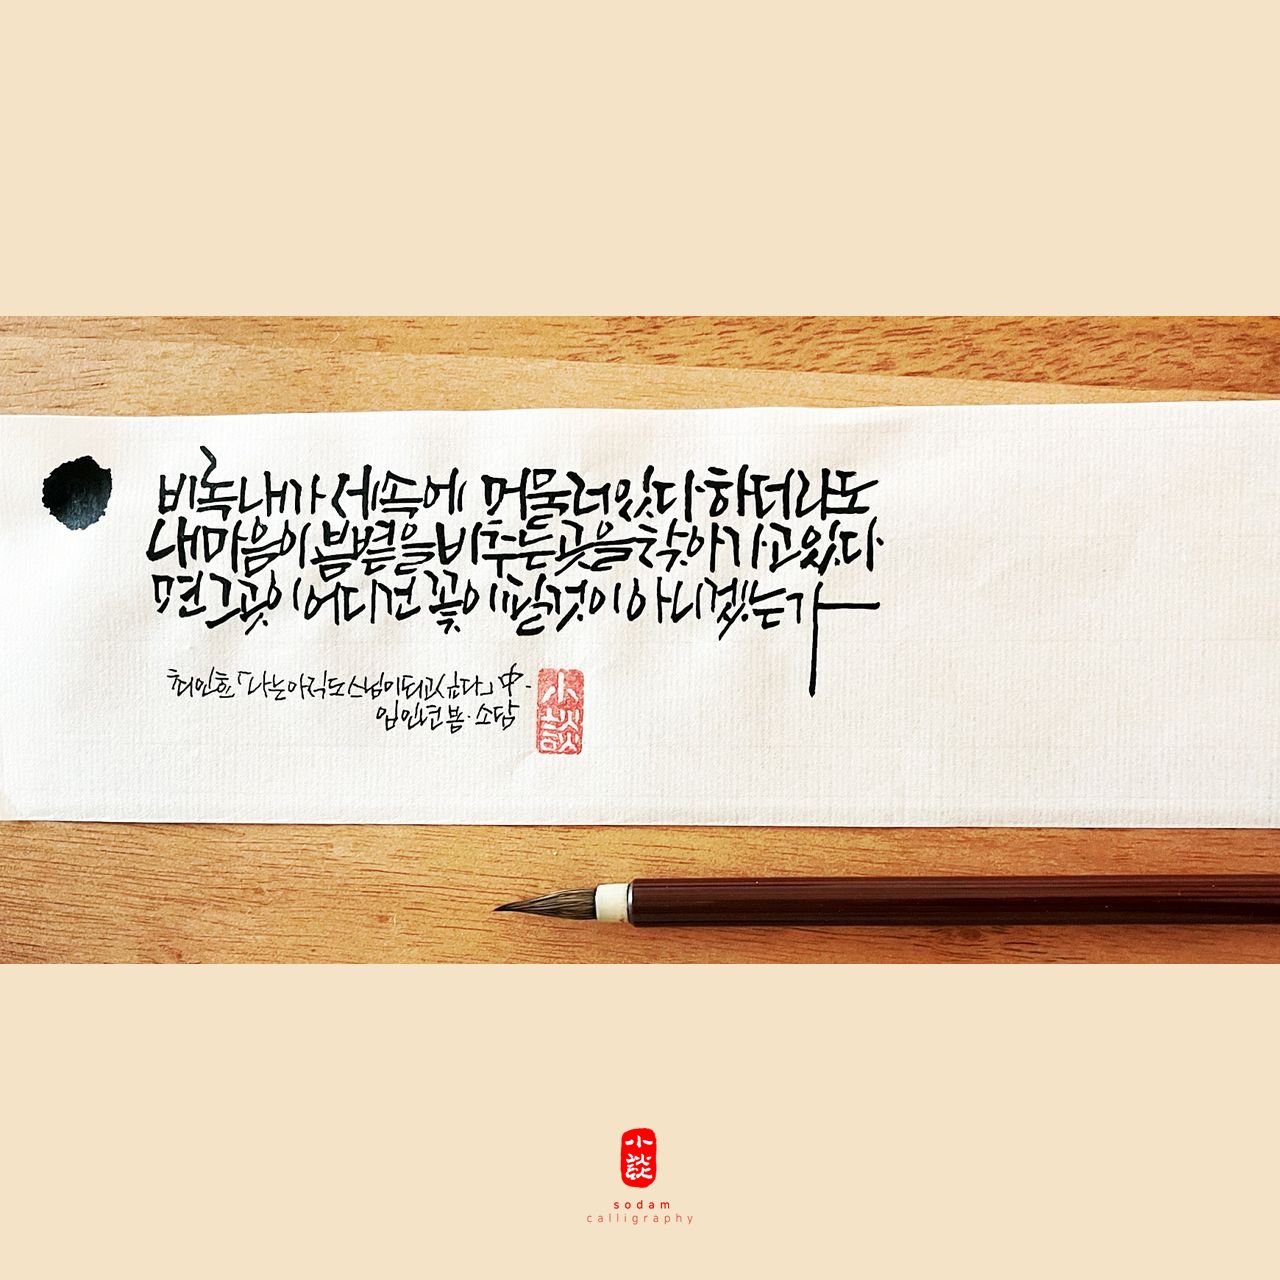 비록 내가 세속에 머물러 있다 하더라도
내 마음이 봄볕을 비추는 곳을 찾아가고 있다
면 그곳이 어디건 꽃이 필 것이 아니겠는가
최인호 「나는 아직도 스님이 되고 싶다」 中.
임인년 봄. 소담
小談
小談
sodam
calligraphy